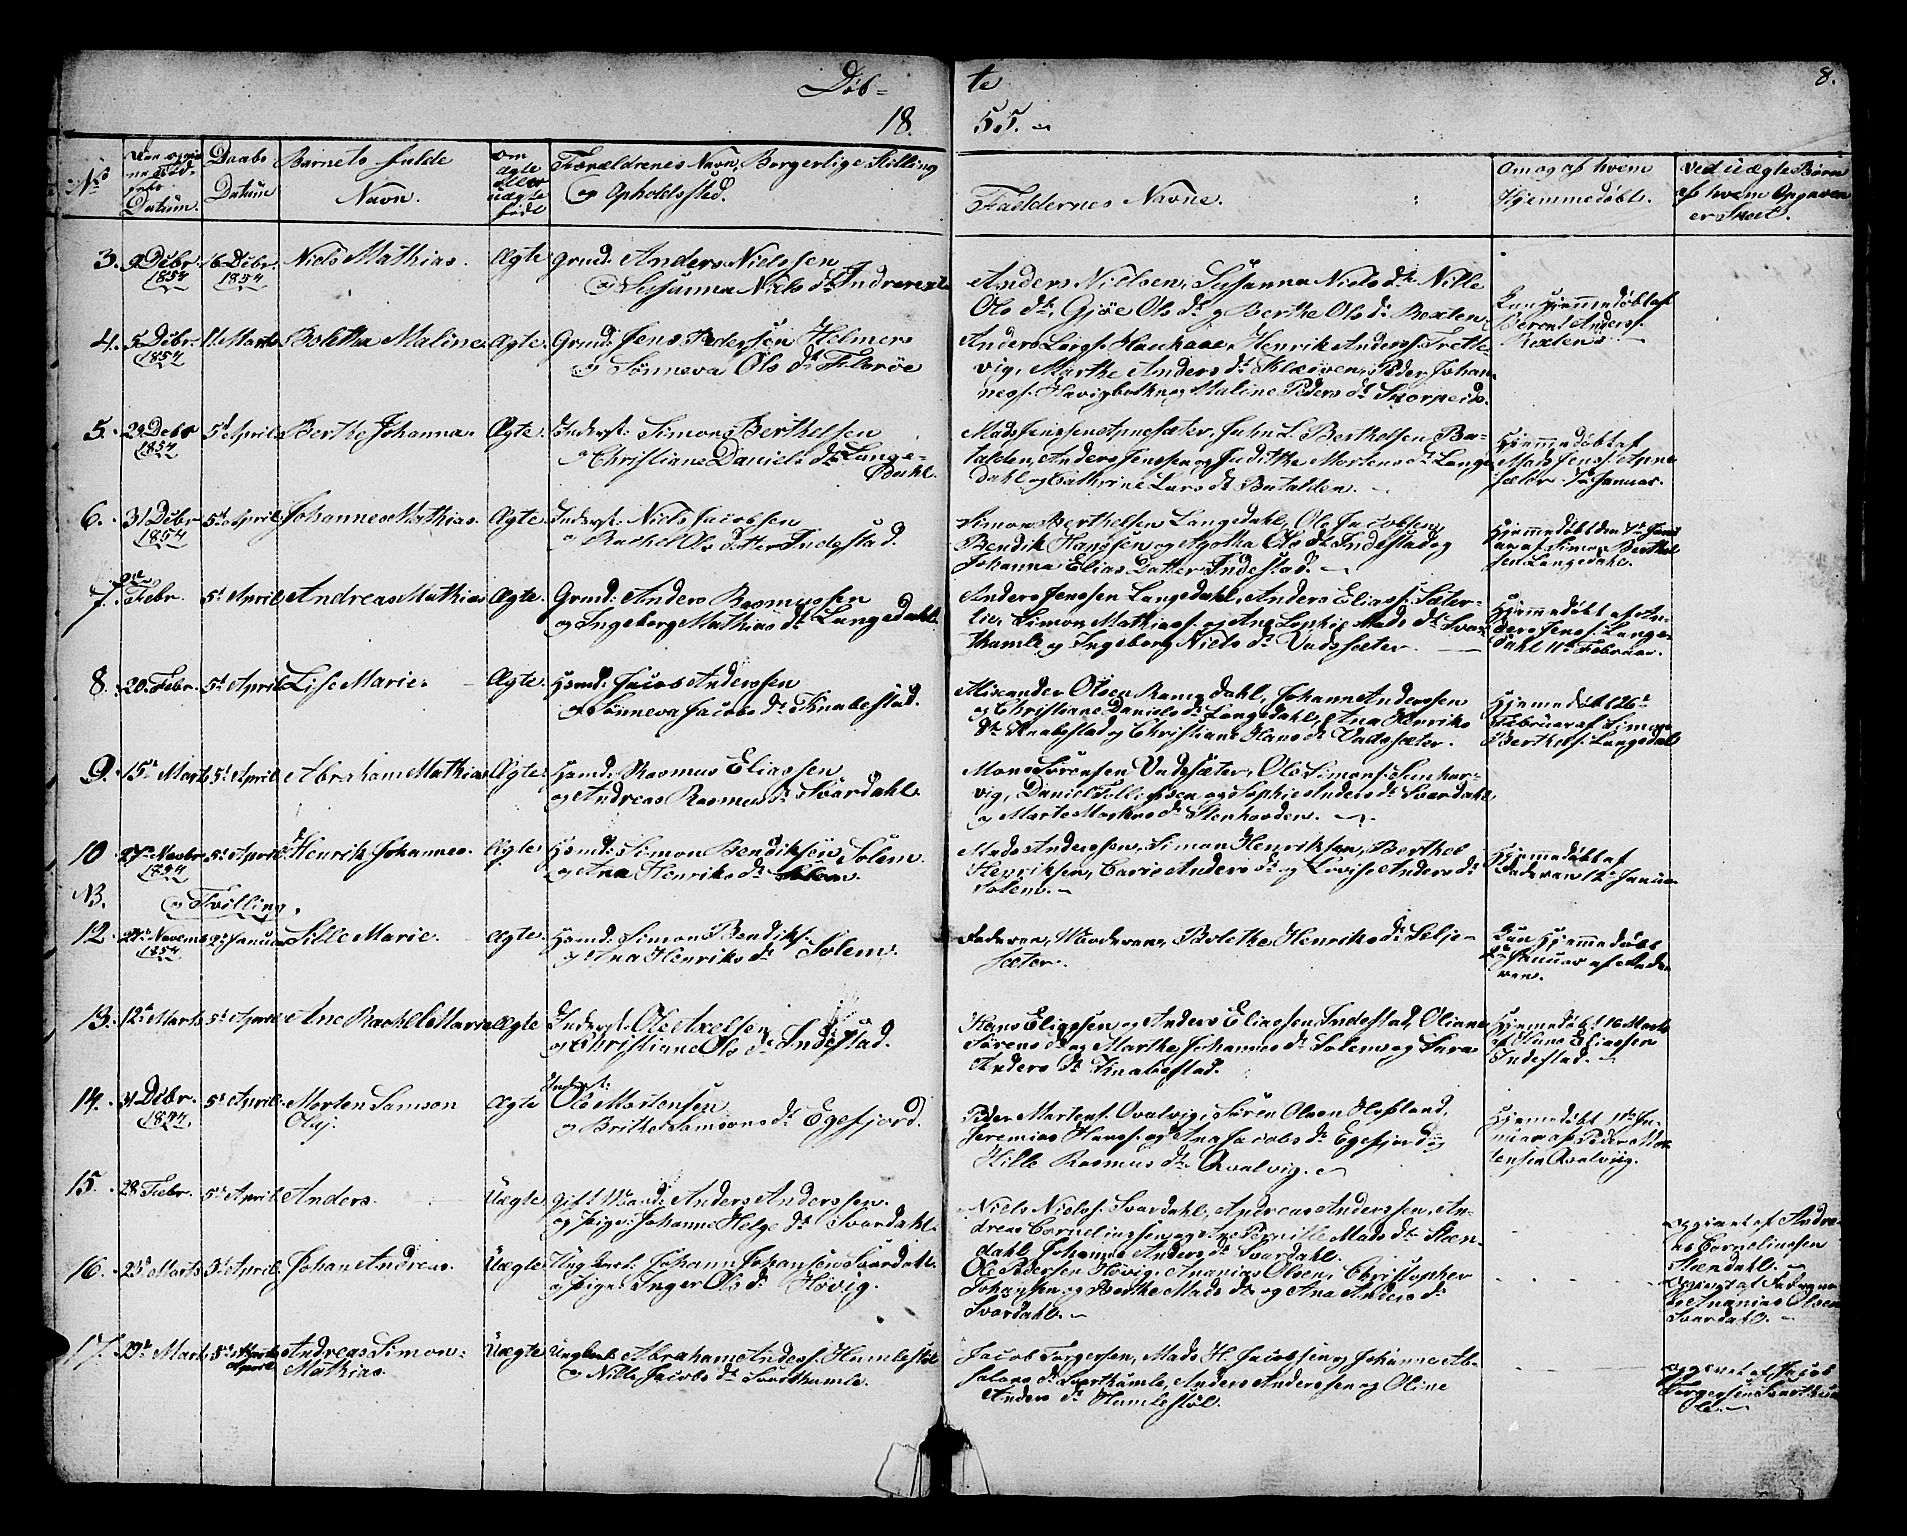 Döb=
te
8.
18
55. -
No
Datum.
Daabs
Datum
Barnets fulde
Navn.
om
ægte
eller
uægte
født
Forældrenes Navn, Borgerlige Stilling
og Opholdssted.
Faddernes Navne.
Om og af hvem
Hjemmedøbt.
Ved uægte Børn
af hvem Opgaven
er skeet.
3. 9 Dcbr. 1854 16 Dcbr. 1854 Niels Mathias. Ægte grmd: Anders Nielssen
og Susanna Niels dt. Indrerexte
Anders Nielsen, Susanna Niels dt. Nille
Ols dt., Gjøe Ols dt. og Berthe Ols dt. Rexten.
Kun Hjemmedöbt af
Berent Anderss:
Rexten.
4. 5 Dcbr. 1854 11 Marts Bolethe Maline. Ægte. Grmd: Jens Pedersen Helmers
og Sönneva Ols dt. Florøe
Anders Larss: Hauhaae, Henrik Anderss: Frette-
vig, Marthe Anders dt. Klæven, Peder Johan-
ness: Havigbotten og Maline Peders dt. Skorpeids.
5. 29 Dcbr 1854 5d April Berthe Johanna. Ægte. Inderst: Simon Berthelsen
og Christiane Daniels dt. Lange-
dahl.
Mads Jenssen Apnesæter, John L. Berthelsen Ba-
talden, Anders Jenssen og Judithe Mortens dt. Lange-
dahl og Cathrine Lars dt. Batalden.
Hjemmedöbt af
Mads Jenss: Apne
sæter Januar.
6. 31 Dcbr 1854 5d April Johannes Mathias. Ægte. Inderst: Niels Jacobsen
og Rachel Ols datter Indestad.
Simon Berthelsen Langedahl, Ole Jacobsen,
Bendik Hanssen og Agotha Ols dt. Indestad og
Johanna Elias Datter Indestad.
Hjemmedöbt den Janu
ar af Simon Berthel
sen Langedahl.
7. Febr. 5d April Andreas Mathias Ægte. Grmd: Anders Rasmussen
og Ingeborg Mathias dt. Langedahl.
Anders Jenssen Langedahl, Anders Eliass: Sæter-
lie, Simon Mathiass: og Ane Sophie Mads dt. Svar
thamle og Ingeborg Niels dt. Vadssæter.
Hjemmedöbt af An-
ders Jenss: Lange-
dahl 11te Februar.
8. 20 Febr. 5d April Lise Marie. Ægte. Hsmd: Jacob Anderssen
og Sönneva Jacobs dt. Knabestad.
Alexander Olsen Ramsdahl, Johann Anderssen
og Christiane Daniels dt. Langedahl, Ana Henriks
dt. Knabestad og Christiane Hans dt. Vadssæter.
Hjemmedöbt 26de
Februar af Simon
Berthels: Langedahl
9. 15de Marts 5d April Abraham Mathias Ægte. Hsmd: Rasmus Eliassen
og Andreas Rasmus dt. Svardahl.
Mons Sörensen Vadssæter, Ole Simons: Sunhor-
vig, Daniel Tollefsen og Sophie Anders dt. Svardahl
og Marte Markus dt. Stenhovden.
10 27de Novbr 1854 5d April Henrik Johannes. Ægte. Hsmd: Simon Bendiksen Solem.
og Ana Henriks dt. Solem.
Mads Anderssen, Simon Henriksen, Berthel
Henriksen, Carie Anders dt. og Lovise Anders dt.
Solem.
Hjemmedöbt af
Faderen 1ste Janua
NB. og Tvilling.
12. 27de Novem 1854 2d Januar Sille Marie. Ægte. Hsmd: Simon Bendiks:
og Ana Henriks dt. Solem.
Faderen, Moderen, Bolethe Henriks dt. Selje-
sæter.
Kun Hjemmedöbt
Januar af Fade
ren.
13. 12te Marts 5d April Ane Rachel Maria Ægte Inderst: Ole Axelsen
og Christiane Ols dt. Indestad.
Hans Eliassen og Anders Eliassen Indestad, Oliane
Sörens dt. og Marthe Johannes dt. Solem og Sara
Anders dt. Knabestad.
Hjemmedöbt 16 Marts
af Hans Eliassen
Indestad.
14. 31 Dcbr. 1854. 5d April Morten Samson
Olaj. Ægte Inderst:
Ole Mortensen
og Brithe Samsons dt. Egefjord.
Peder Martens: Qvalvig, Sören Olsen Hopland,
Jeremias Hanss: og Ana Jacobs dt. Egefjord og
Hille Rasmus dt. Qvalvig.
Hjemmedöbt 11te Ja-
nuar af Peder Mor
tensen Qvalvig.
15. 28 Febr. 5d April Anders. Uægte gift Mand: Anders Anderssen.
og Pige: Johanne Helge dt. Svardahl.
Niels Nielss: Svardahl, Andreas Anderssen, An-
dreas Corneliussen og Ane Pernille Mads dt. Stæn-
dahl, Johanne Anders dt. Svardahl.
Opgivet af Andre-
as Corneliussen
Stændahl.
16. 23de Marts 3d April Johan Andreas. Uægte Ung Karl: Johann Johansen Svardahl
og Pige: Inger Ols dt. Hövig.
Ole Pedersen Hövig, Ananias Olsen, Christopher
Johansen og Berthe Mads dt. og Ana Anders dt.
Svardahl.
Opgivet af Faderne
Ananias Olsen
Svardahl.
17. 29de Marts 5d April Andreas Simon
Mathias. Uægte Ungkarl: Abraham Anderss: Humlestöl
og Nille Jacobs dt. Svarthamle.
Jacob Torgersen, Mads H. Jacobsen og Johanne Ab-
salons dt. Svarthamle, Anders Anderssen og Oline
Anders dt. Humlestöl.
Opgivet af Jacob
Torgersen Svartham
le.